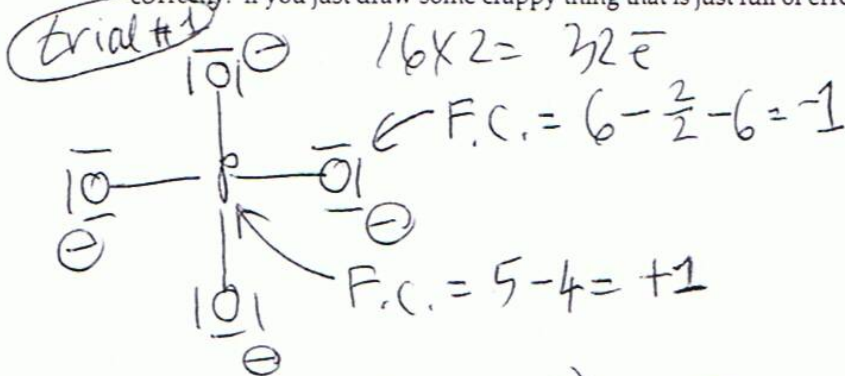 correctly? If you just draw some crappy thing that is just full of erro
trial #1
|O| ⊖ 16 X 2 = 32 e̅
F.C. = 6 - 2/2 - 6 = -1
|O P O|
⊖ ⊖
F.C. = 5 - 4 = +1
|O|
⊖